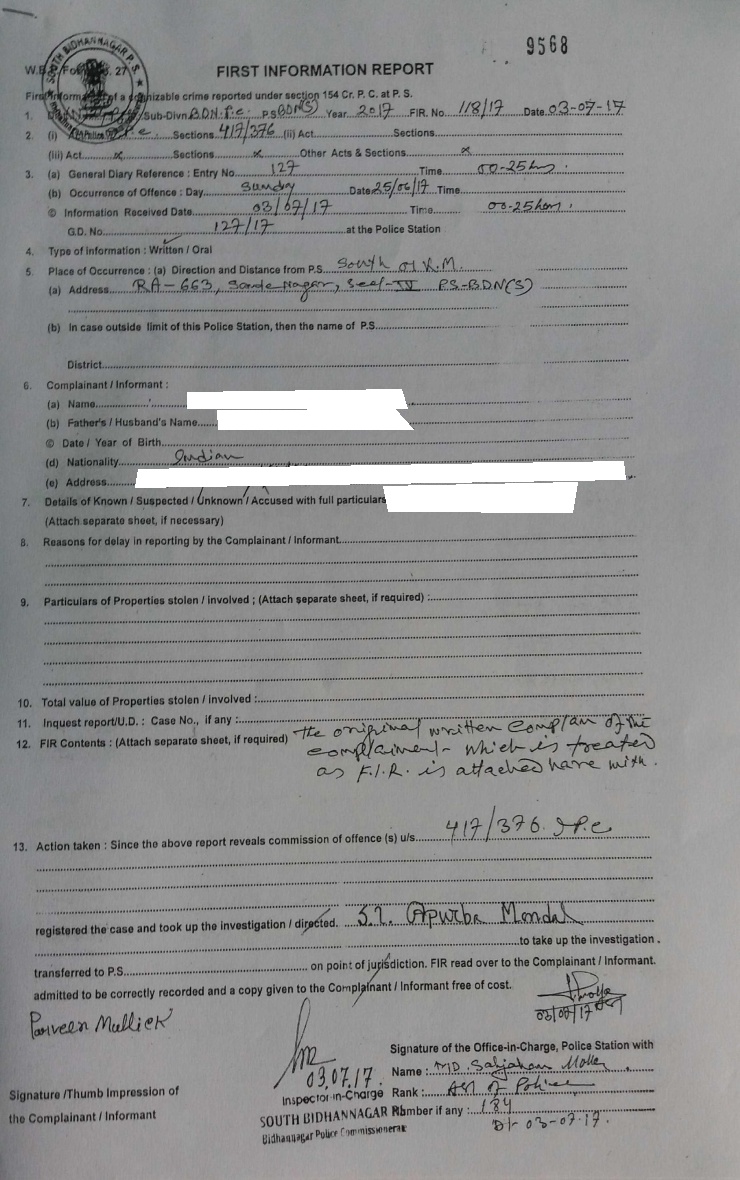 9568
SOUTH BIDHANNAGAR P.S.
27
FIRST INFORMATION REPORT
First Information of a cognizable crime reported under section 154 Cr. P. C. at P. S.
1. Sub-Divn BDN. P.S BDN(S) Year 2017 FIR. No. 118/17 Date 03-07-17
2. (i) Sections 417/376 (ii) Act Sections
(iii) Act x Sections x Other Acts & Sections x
3. (a) General Diary Reference : Entry No 127 Time 00-25 hrs.
(b) Occurrence of Offence : Day Sunday Date 25/06/17 Time
© Information Received Date 03/07/17 Time 00-25 hrs.
G.D. No 127/17 at the Police Station
4. Type of information : Written / Oral
5. Place of Occurrence : (a) Direction and Distance from P.S. South
(a) Address RA-663, Sec-IV PS-BDN(S)
(b) In case outside limit of this Police Station, then the name of P.S
District
6. Complainant / Informant :
(a) Name
(b) Father's / Husband's Name
© Date / Year of Birth
(d) Nationality Indian
(e) Address
7. Details of Known / Suspected / Unknown / Accused with full particulars
(Attach separate sheet, if necessary)
8. Reasons for delay in reporting by the Complainant / Informant
9. Particulars of Properties stolen / involved ; (Attach separate sheet, if required) :
10. Total value of Properties stolen / involved :
11. Inquest report/U.D. : Case No., if any :
12. FIR Contents : (Attach separate sheet, if required) the original written complain of the
complainent which is treated
as F.I.R. is attached here with.
13. Action taken : Since the above report reveals commission of offence (s) u/s 417/376 I.P.C
registered the case and took up the investigation / directed. S.I. Apurba Mondal
to take up the investigation .
transferred to P.S on point of jurisdiction. FIR read over to the Complainant / Informant.
admitted to be correctly recorded and a copy given to the Complainant / Informant free of cost.
[complainant's signature omitted for privacy]
03/07/17
Signature of the Office-in-Charge, Police Station with
03.07.17.
Name : MD. Sahjahan Molla
Inspector-in-Charge
Rank : ASI of Police
SOUTH BIDHANNAGAR P
Number if any : 184
Bidhannagar Police Commissionerate
Dt- 03-07-17.
Signature /Thumb Impression of
the Complainant / Informant